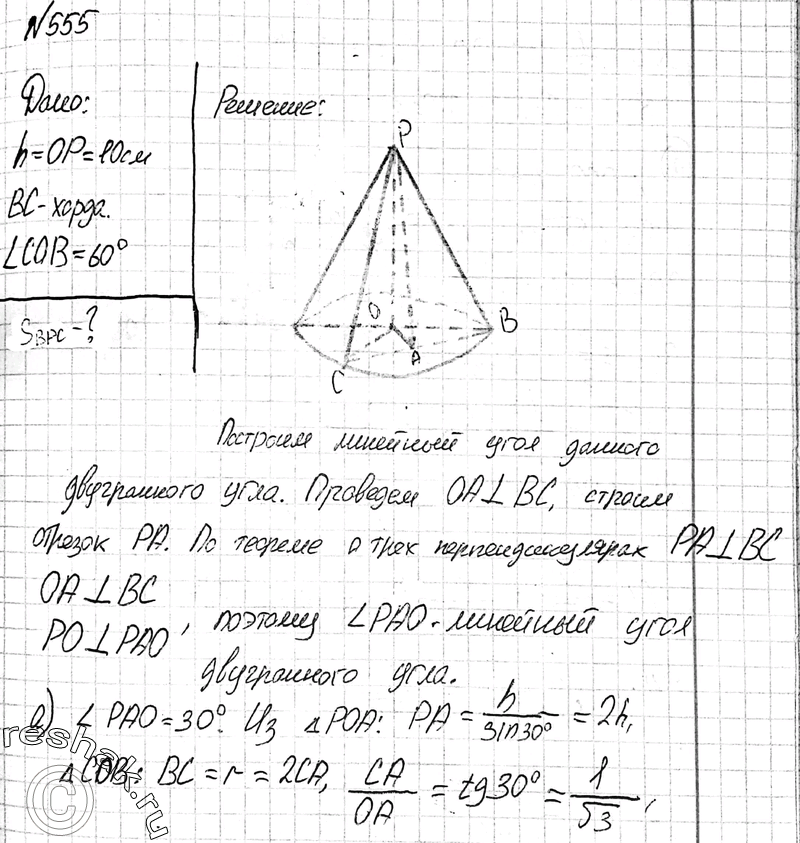 №555
Дано:
h=OP=10см
BC-хорда.
∠COB=60°
S_BPC-?
Решение:
P
O
B
A
C
Построим линейный угол данного
двугранного угла. Проведем OA⊥BC, строим
отрезок PA. По теореме о трех перпендикулярах PA⊥BC
OA⊥BC
PO⊥PAO, поэтому ∠PAO-линейный угол
двугранного угла.
а) ∠PAO=30°. Из △POA: PA = h/sin30° = 2h,
△COB: BC = r = 2CA, CA/OA = tg30° = 1/√3,
reshak.ru
©